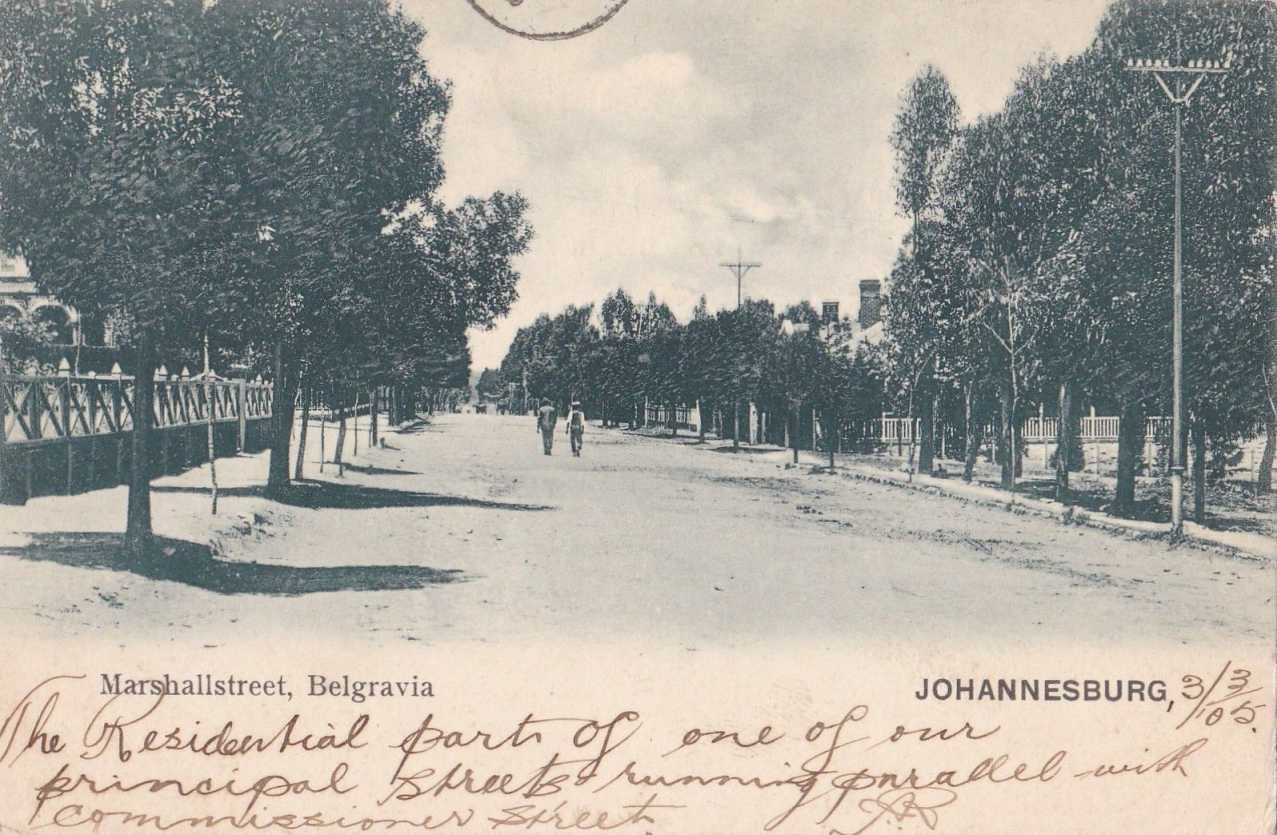 Marshallstreet, Belgravia
JOHANNESBURG, 3/3/05.
The Residential part of one of our
principal streets running parallel with
Commissioner Street